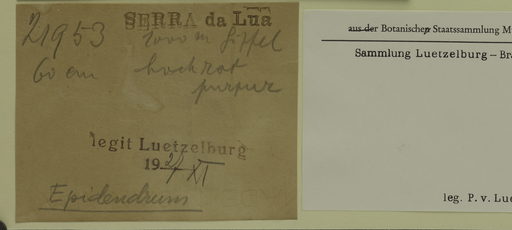 SERRA da Lua
21953 2000 m Gipfel
60 cm hochrot
purpur
legit Luetzelburg
1927 XI
Epidendrum
aus der Botanischen Staatssammlung M
Sammlung Luetzelburg – Bra
leg. P. v. Lue